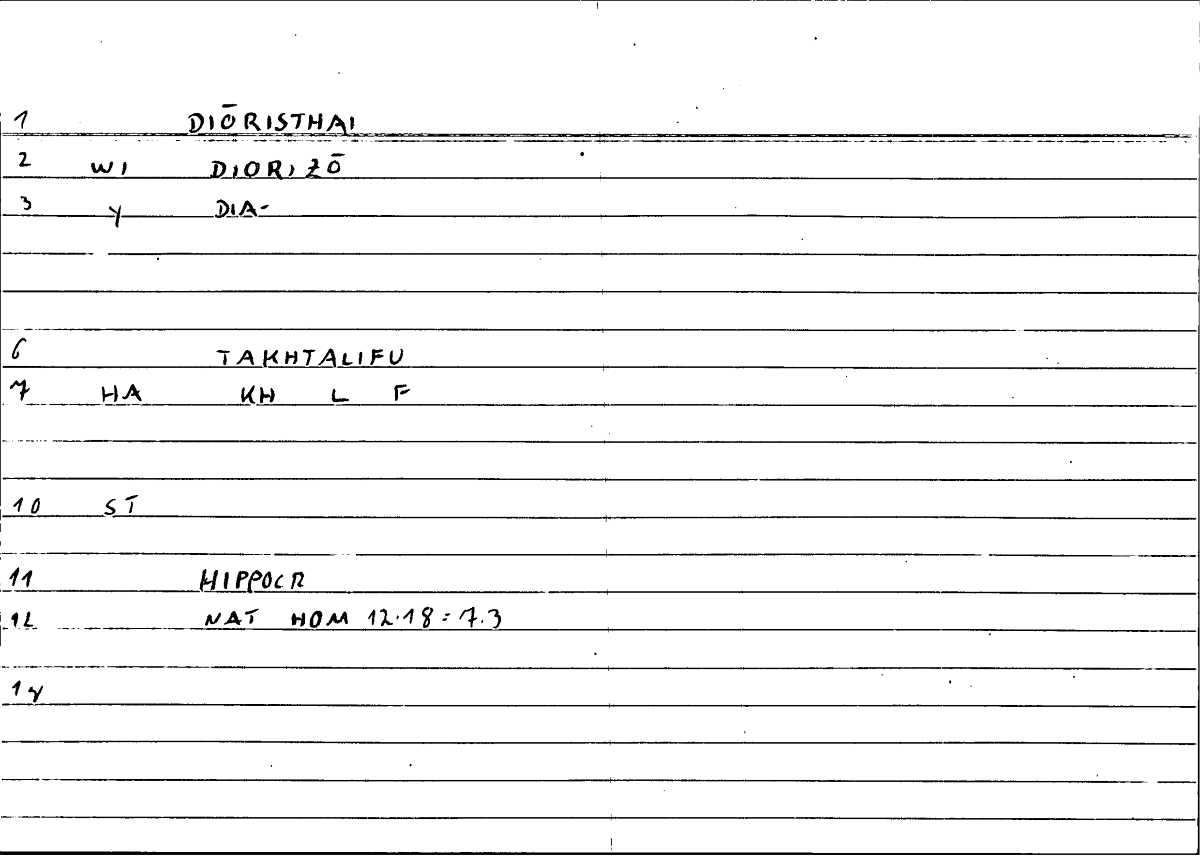 1 DIŌRISTHAI
2 WI DIORIZŌ
3 Y DIA-
6 TAKHTALIFU
7 HA KH L F
10 ST
11 HIPPOCR
12 NAT HOM 12.18 = 7.3
14